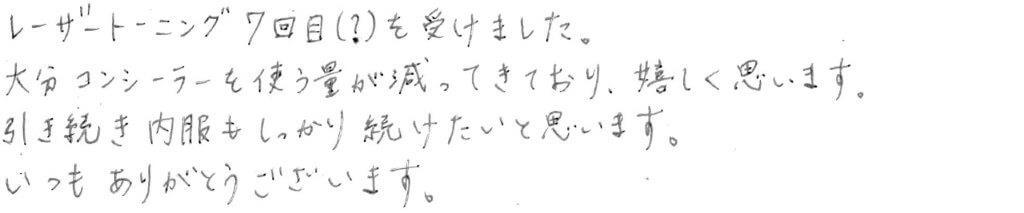 レーザートーニング7回目(?)を受けました。
大分コンシーラーを使う量が減ってきており、嬉しく思います。
引き続き内服もしっかり続けたいと思います。
いつもありがとうございます。